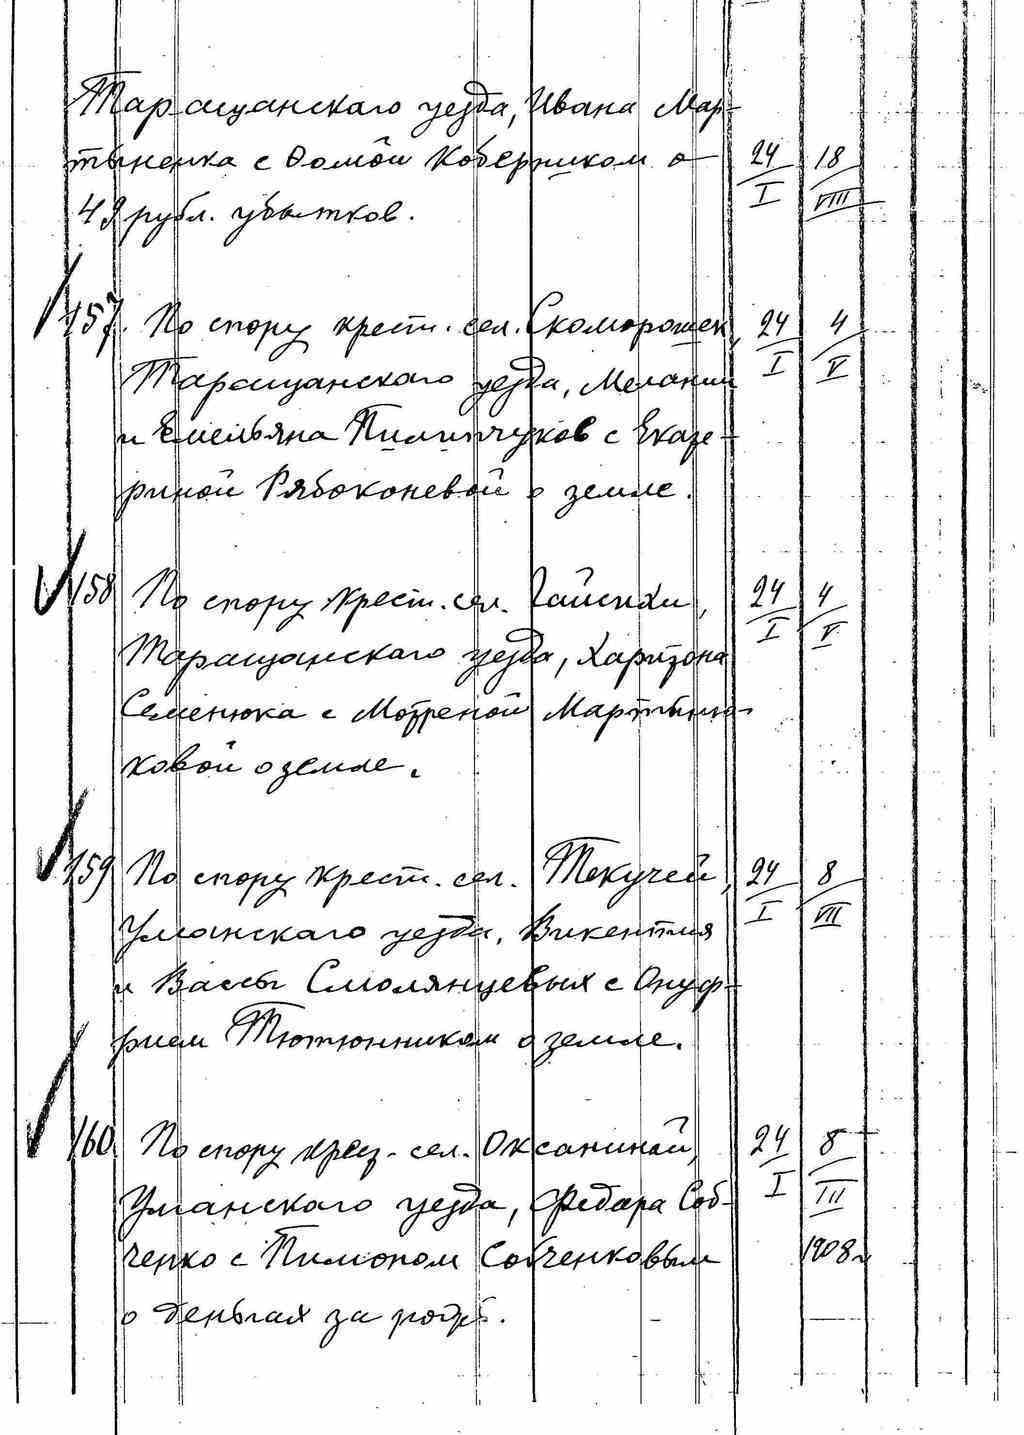 Таращанскаго уезда, Ивана Мар-
тыненка с Фомой Коберником о 24/I 18/VIII
49 рубл. убытков.
157. По спору крест. сел. Скоморошек, 24/I 4/V
Таращанскаго уезда, Мелании
и Емельяна Пилипчуков с Екате-
риной Рябоконевой о земле.
158 По спору крест. сел. Гайсихи, 24/I 4/V
Таращанскаго уезда, Харитона
Семенюка с Мотреной Мартыню-
ковой о земле.
159 По спору крест. сел. Текучей, 24/I 8/VII
Уманскаго уезда, Викентия
и Вассы Смолянцевых с Онуф-
рием Тютюнником о земле.
160. По спору крест. сел. Оксаниной, 24/I 8/III
Уманскаго уезда, Федора Соб-
ченко с Пимоном Собченковым 1908 г.
о деньгах за